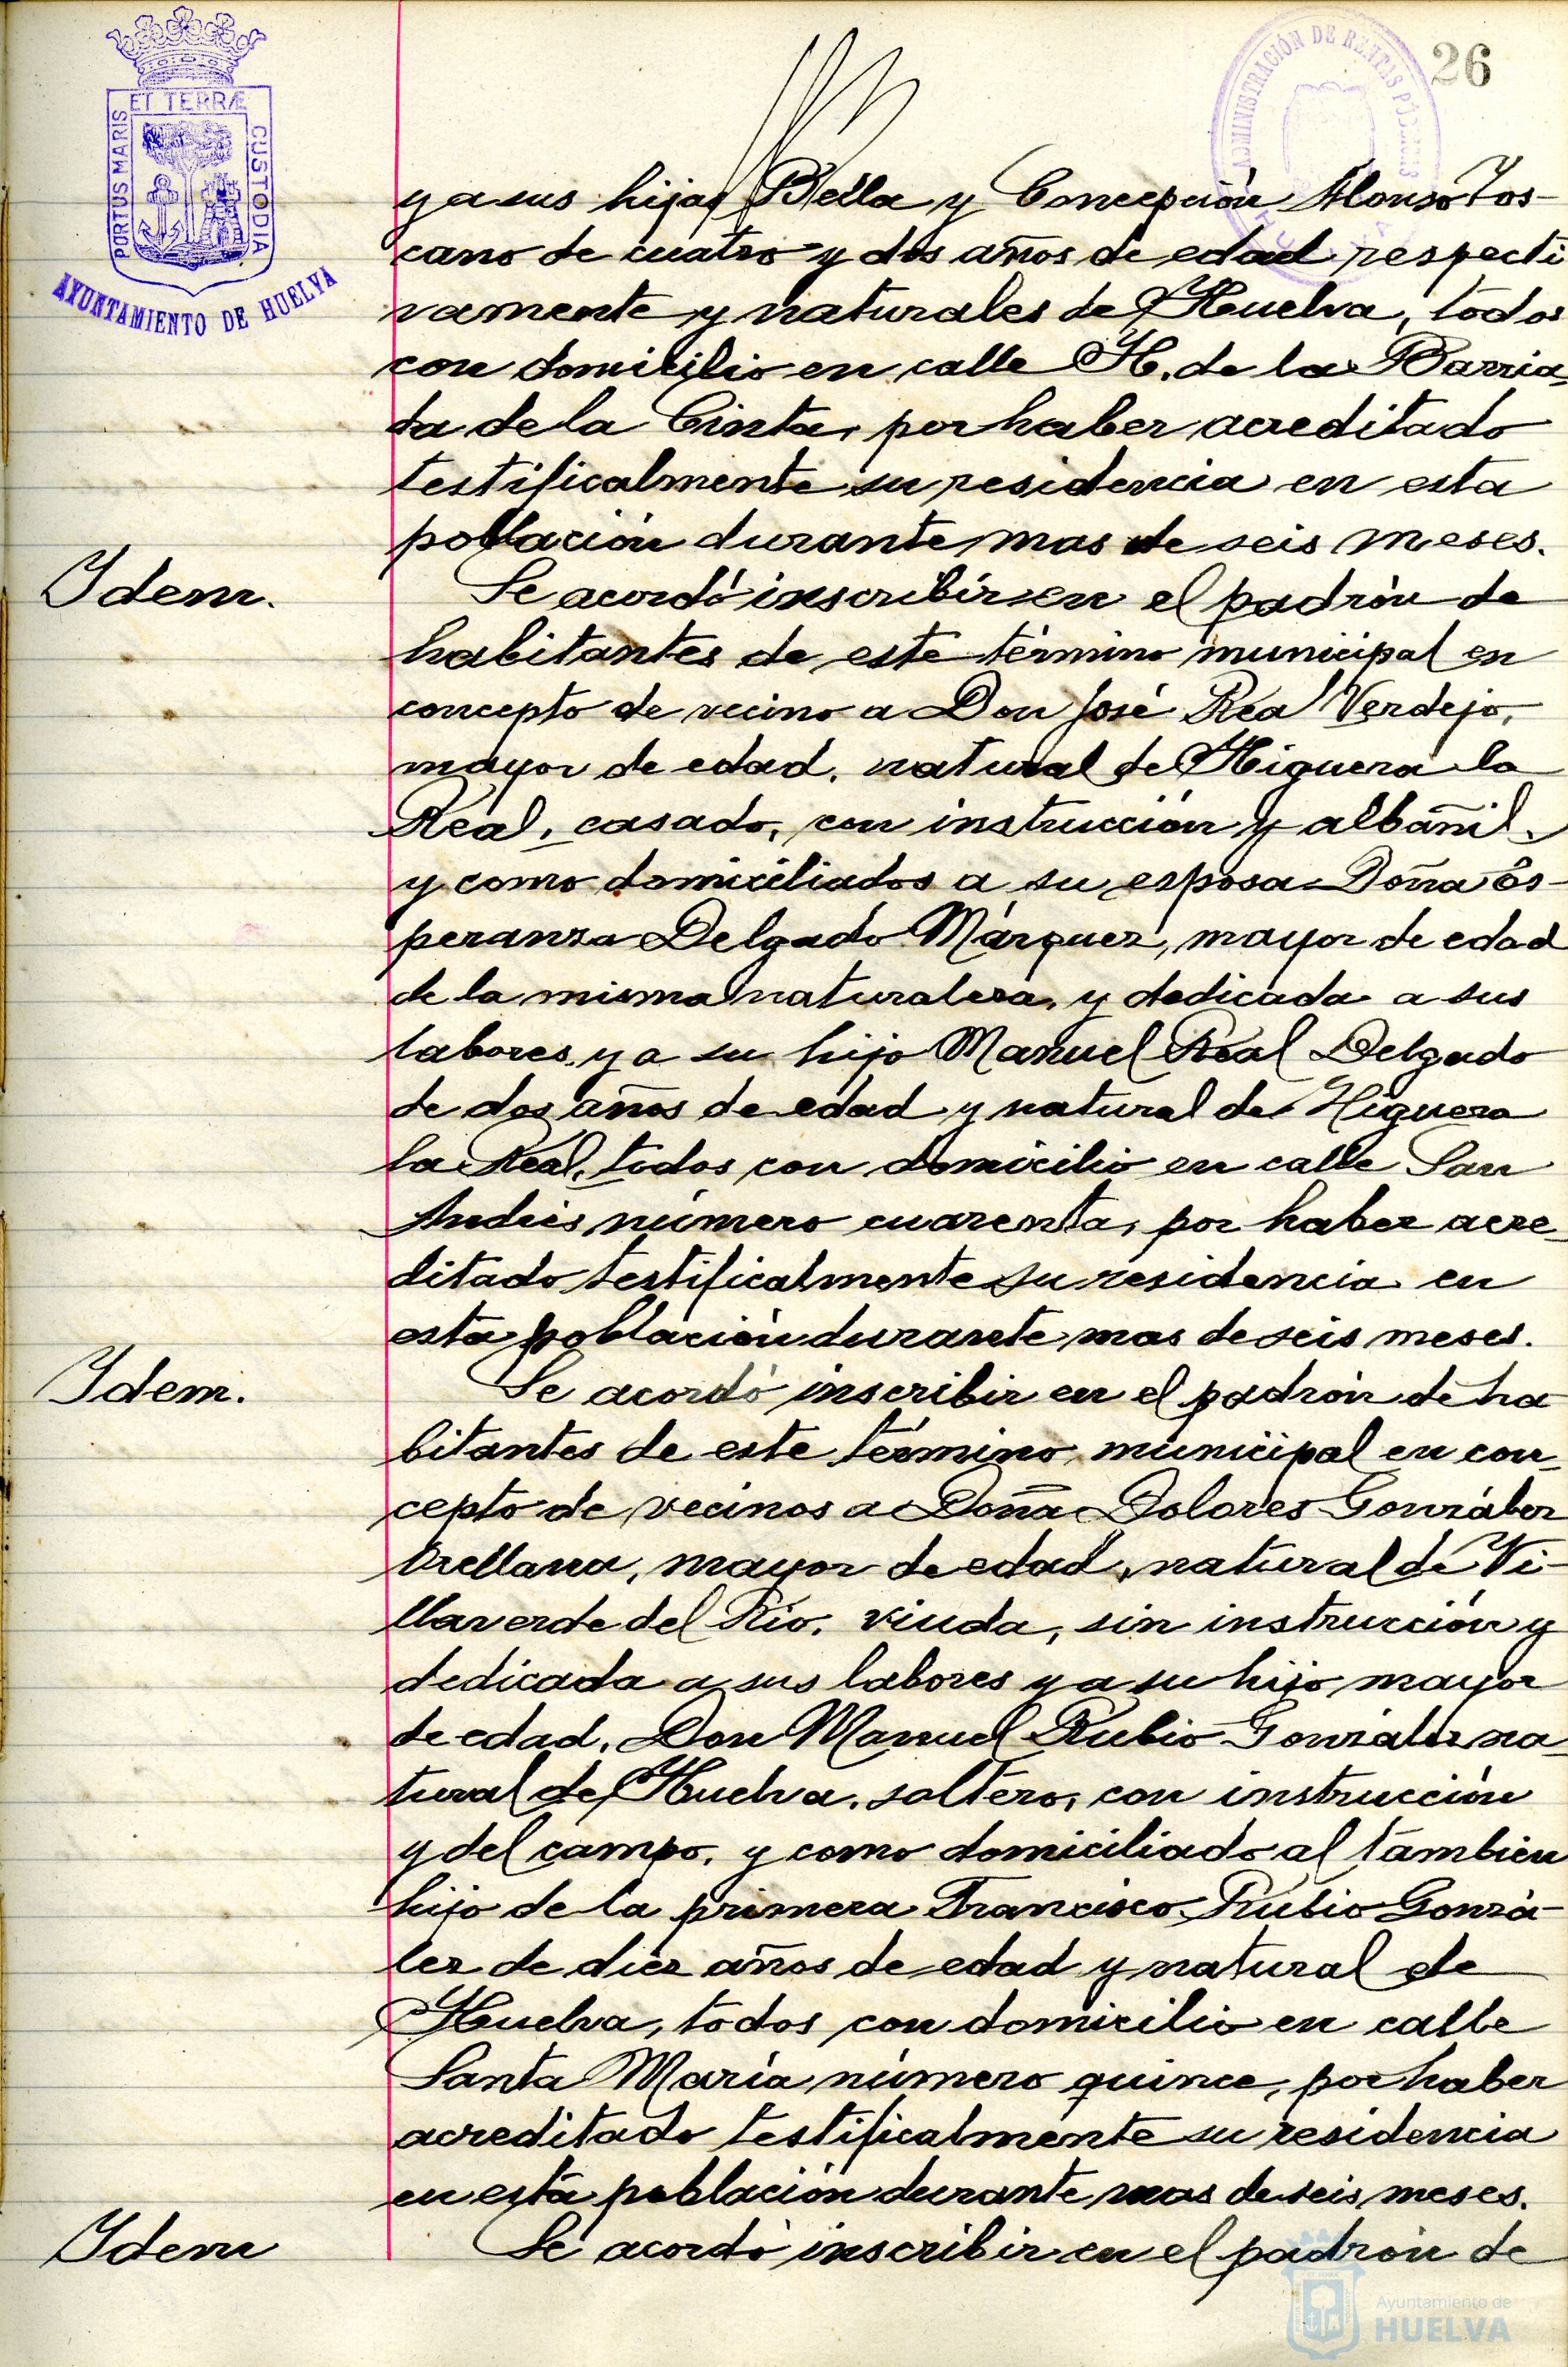 26
ET TERRÆ
PORTUS MARIS
CUSTODIA
AYUNTAMIENTO DE HUELVA
ADMINISTRACIÓN DE RENTAS PÚBLICAS
y a sus hijas Bella y Concepción Alonso Tos-
cano de cuatro y dos años de edad respecti
vamente y naturales de Huelva, todos
con domicilio en calle H. de la Barria-
da de la Cinta, por haber acreditado
testificalmente su residencia en esta
población durante mas de seis meses.
Idem.
Se acordó inscribir en el padrón de
habitantes de este término municipal en
concepto de vecino a Don José Rea Verdejo,
mayor de edad, natural de Higuera la
Real, casado, con instrucción y albañil,
y como domiciliados a su esposa Doña Es-
peranza Delgado Márquez, mayor de edad
de la misma naturaleza, y dedicada a sus
labores y a su hijo Manuel Real Delgado
de dos años de edad y natural de Higuera
la Real, todos con domicilio en calle San
Andrés número cuarenta, por haber acre-
ditado testificalmente su residencia en
esta población durante mas de seis meses.
Idem.
Se acordó inscribir en el padrón de ha
bitantes de este término municipal en con-
cepto de vecinos a Doña Dolores González
Orellana, mayor de edad, natural de Vi-
llaverde del Río, viuda, sin instrucción y
dedicada a sus labores y a su hijo mayor
de edad, Don Manuel Rubio González na-
tural de Huelva, soltero, con instrucción
y del campo, y como domiciliado al tambien
hijo de la primera Francisco Rubio Gonzá-
lez de diez años de edad y natural de
Huelva, todos con domicilio en calle
Santa María número quince, por haber
acreditado testificalmente su residencia
en esta población durante mas de seis meses.
Idem
Se acordó inscribir en el padrón de
Ayuntamiento de
HUELVA